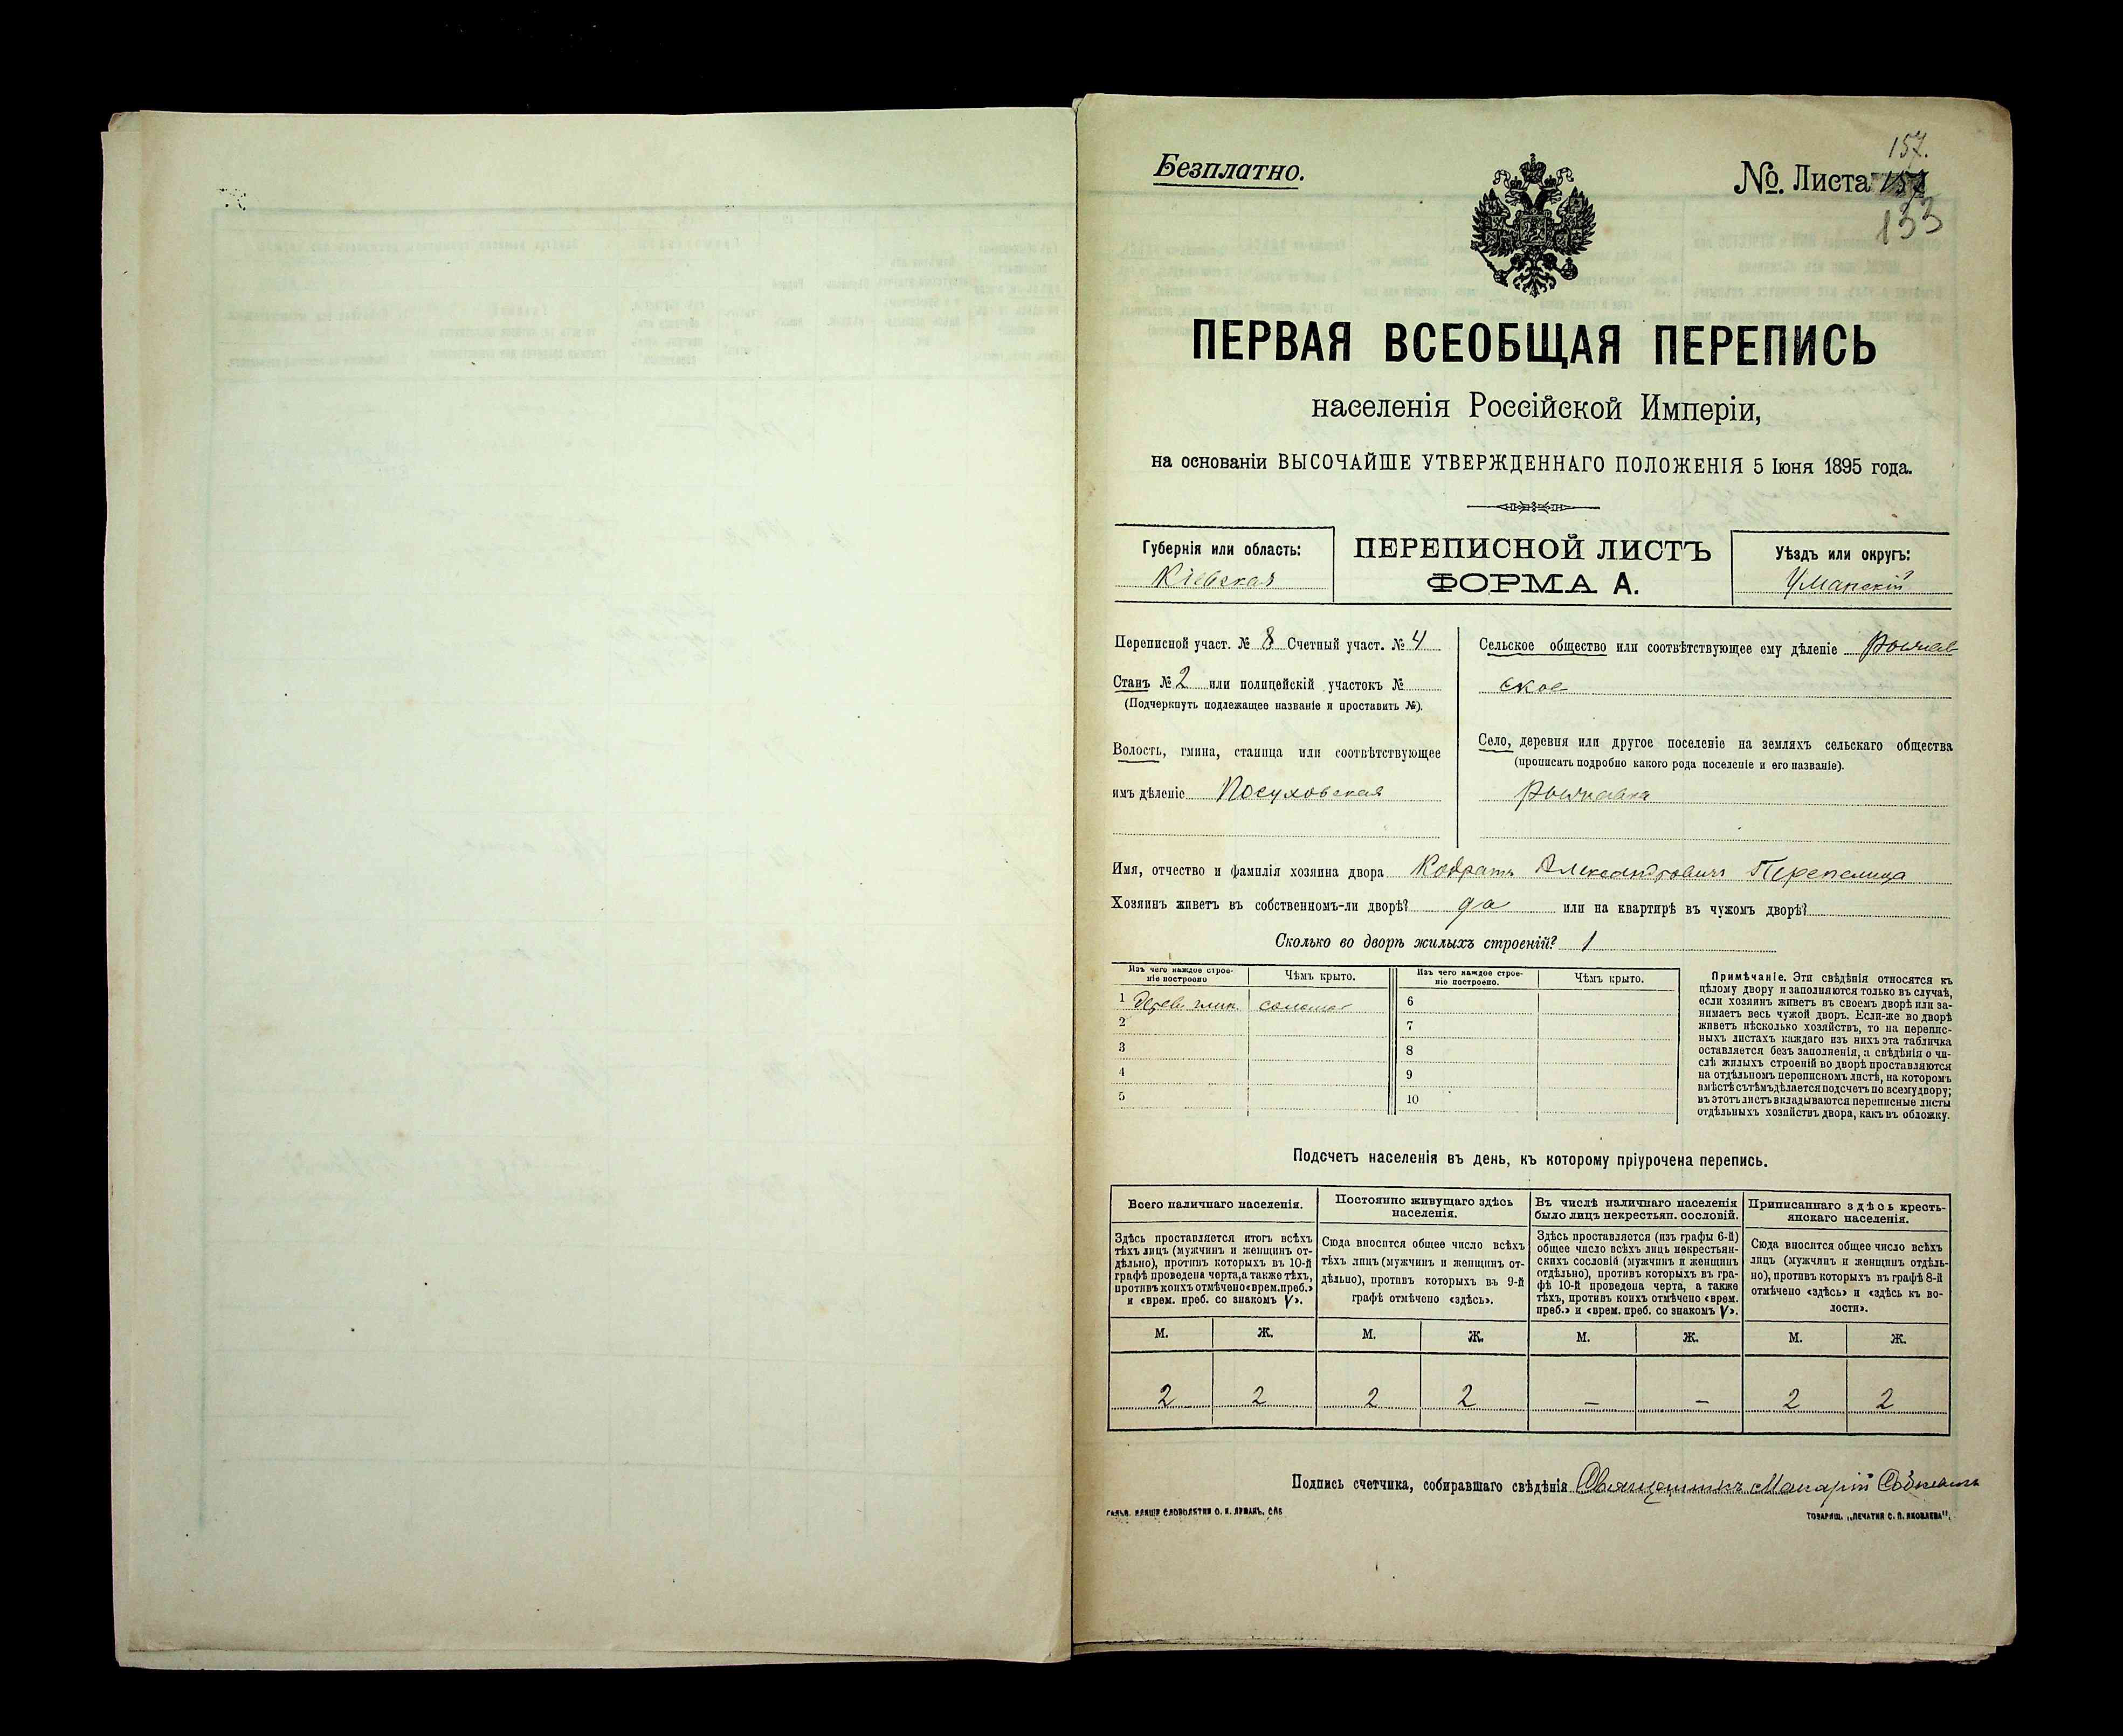 Безплатно.
157.
№. Листа 157
133
ПЕРВАЯ ВСЕОБЩАЯ ПЕРЕПИСЬ
населенія Россійской Имперіи,
на основаніи ВЫСОЧАЙШЕ УТВЕРЖДЕННАГО ПОЛОЖЕНІЯ 5 Іюня 1895 года.
Губернія или область:
Кіевская
ПЕРЕПИСНОЙ ЛИСТЪ
ФОРМА А.
Уѣздъ или округъ:
Уманскій
Переписной участ. № 8 Счетный участ. № 4
Станъ № 2 или полицейскій участокъ №
(Подчеркнуть подлежащее названіе и проставить №).
Волость, гмина, станица или соотвѣтствующее
имъ дѣленіе Посуховская
Сельское общество или соотвѣтствующее ему дѣленіе
ское
Село, деревня или другое поселеніе на земляхъ сельскаго общества
(прописать подробно какого рода поселеніе и его названіе).
Имя, отчество и фамилія хозяина двора Кодратъ Александровичъ Перепелица
Хозяинъ живетъ въ собственномъ-ли дворѣ? да или на квартирѣ въ чужомъ дворѣ?
Сколько во дворѣ жилыхъ строеній? 1
Изъ чего каждое строе-
ніе построено
Чѣмъ крыто.
Изъ чего каждое строе-
ніе построено.
Чѣмъ крыто.
1 дерев. глин. солома 6
2 7
3 8
4 9
5 10
Примѣчаніе. Эти свѣдѣнія относятся къ
цѣлому двору и заполняются только въ случаѣ,
если хозяинъ живетъ въ своемъ дворѣ или за-
нимаетъ весь чужой дворъ. Если-же во дворѣ
живетъ нѣсколько хозяйствъ, то на перепис-
ныхъ листахъ каждаго изъ нихъ эта табличка
оставляется безъ заполненія, а свѣдѣнія о чи-
слѣ жилыхъ строеній во дворѣ проставляются
на отдѣльномъ переписномъ листѣ, на которомъ
вмѣстѣ съ тѣмъ дѣлается подсчетъ по всему двору;
въ этотъ листъ вкладываются переписные листы
отдѣльныхъ хозяйствъ двора, какъ въ обложку.
Подсчетъ населенія въ день, къ которому пріурочена перепись.
Всего наличнаго населенія.
Здѣсь проставляется итогъ всѣхъ
тѣхъ лицъ (мужчинъ и женщинъ от-
дѣльно), противъ которыхъ въ 10-й
графѣ проведена черта, а также тѣхъ,
противъ коихъ отмѣчено «врем. преб.»
и «врем. преб. со знакомъ V».
Постоянно живущаго здѣсь
населенія.
Сюда вносится общее число всѣхъ
тѣхъ лицъ (мужчинъ и женщинъ от-
дѣльно), противъ которыхъ въ 9-й
графѣ отмѣчено «здѣсь».
Въ числѣ наличнаго населенія
было лицъ некрестьян. сословій.
Здѣсь проставляется (изъ графы 6-й)
общее число всѣхъ лицъ некрестьян-
скихъ сословій (мужчинъ и женщинъ
отдѣльно), противъ которыхъ въ гра-
фѣ 10-й проведена черта, а также
тѣхъ, противъ коихъ отмѣчено «врем.
преб.» и «врем. преб. со знакомъ V».
Приписаннаго здѣсь кресть-
янскаго населенія.
Сюда вносится общее число всѣхъ
лицъ (мужчинъ и женщинъ отдѣль-
но), противъ которыхъ въ графѣ 8-й
отмѣчено «здѣсь» и «здѣсь къ во-
лости».
М. Ж. М. Ж. М. Ж. М. Ж.
2 2 2 2 – – 2 2
Подпись счетчика, собиравшаго свѣдѣнія Священникъ Макарій
ТОВАРИЩ. „ПЕЧАТНЯ С. П. ЯКОВЛЕВА".